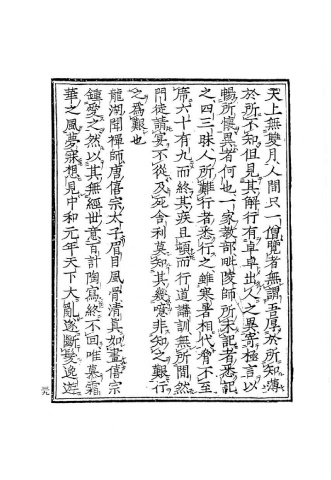 天上無雙月人間只一僧覽者無謂吾厚於所知薄
於所不知但見其解行有卓卓出人之異嵜極言以
暢所懷異者何也一家教部毗陵師所未記者悉記
之四三昧人所難行者悉行之雖寒暑相代脅不至
席六十有九而終其疾且頓而行道講訓無所間然
門徒請宴不從及死舍利莫知其幾噫非知之艱行
之為艱也
龍湖聞禪師唐僖宗太子眉目風骨清真如畫僖宗
鍾愛之然以其無經世意百計陶寫終不回唯慕霜
華之風夢寐想見中和元年天下大亂遂斷髮逸遊
三九